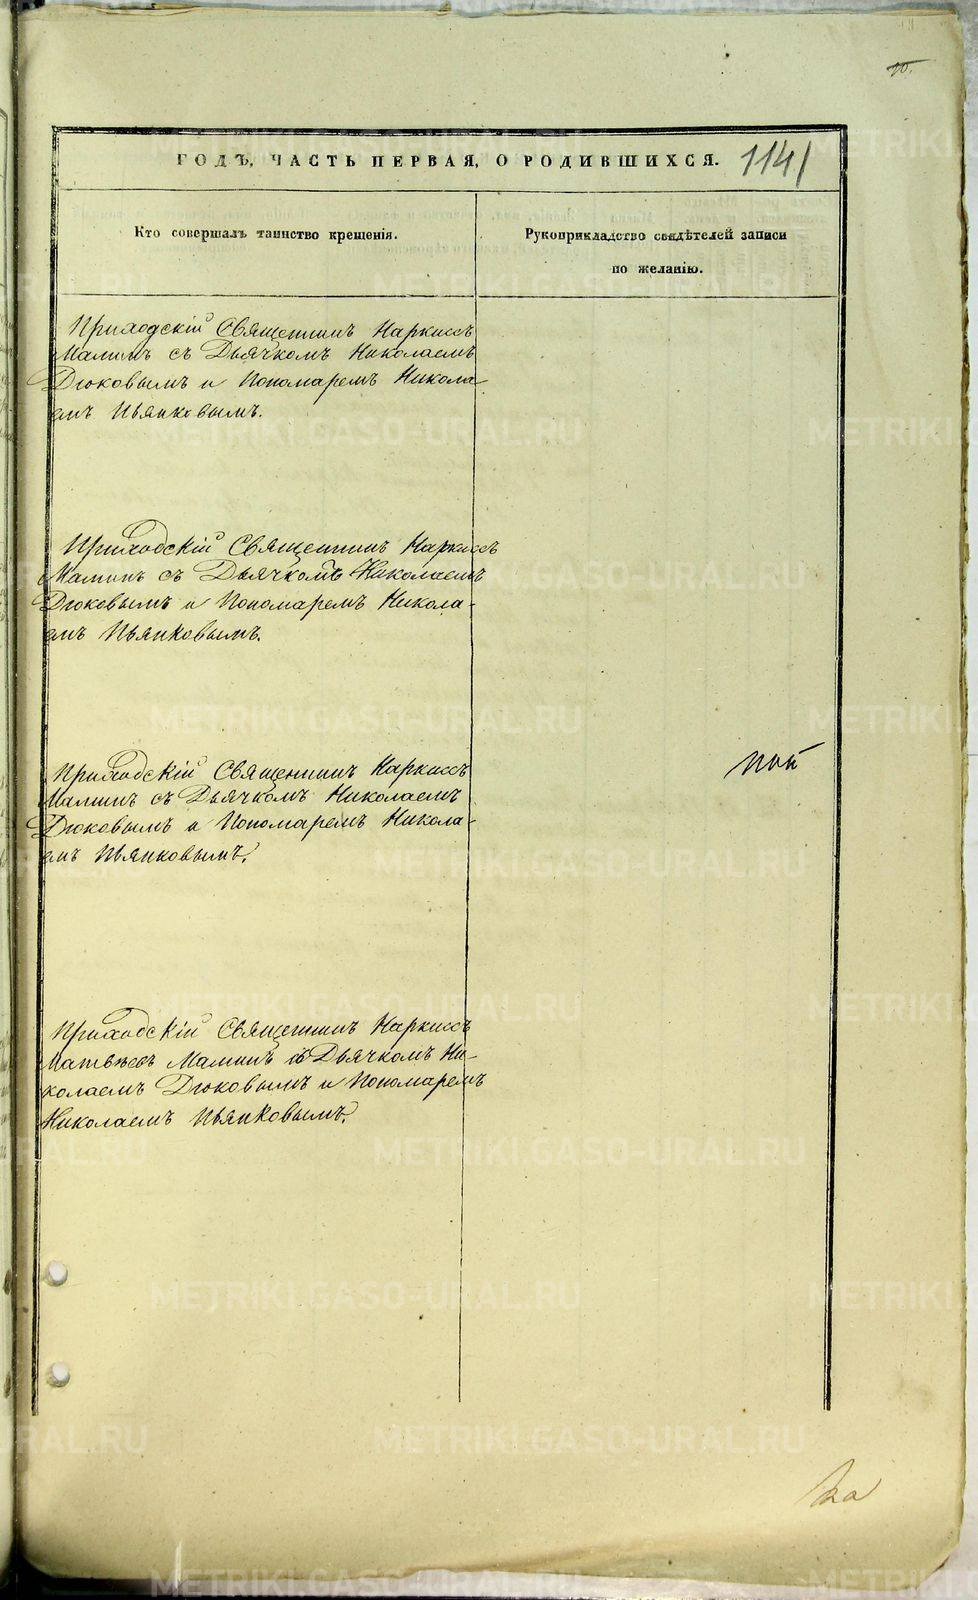 10.
ГОДЪ, ЧАСТЬ ПЕРВАЯ, О РОДИВШИХСЯ. 1141
Кто совершалъ таинство крещенія.
Рукоприкладство свидѣтелей записи
по желанію.
Приходскій Священникъ Наркисъ
Маминъ съ Дьячкомъ Николаемъ
Дюковымъ и Пономаремъ Никола-
емъ Пьянковымъ.
Приходскій Священникъ Наркисъ
Маминъ съ Дьячкомъ Николаемъ
Дюковымъ и Пономаремъ Никола-
емъ Пьянковымъ.
Приходскій Священникъ Наркисъ
Маминъ съ Дьячкомъ Николаемъ
Дюковымъ и Пономаремъ Никола-
емъ Пьянковымъ.
Приходскій Священникъ Наркисъ
Матвѣевъ Маминъ съ Дьячкомъ Ни-
колаемъ Дюковымъ и Пономаремъ
Николаемъ Пьянковымъ.
METRIKI.GASO-URAL.RU